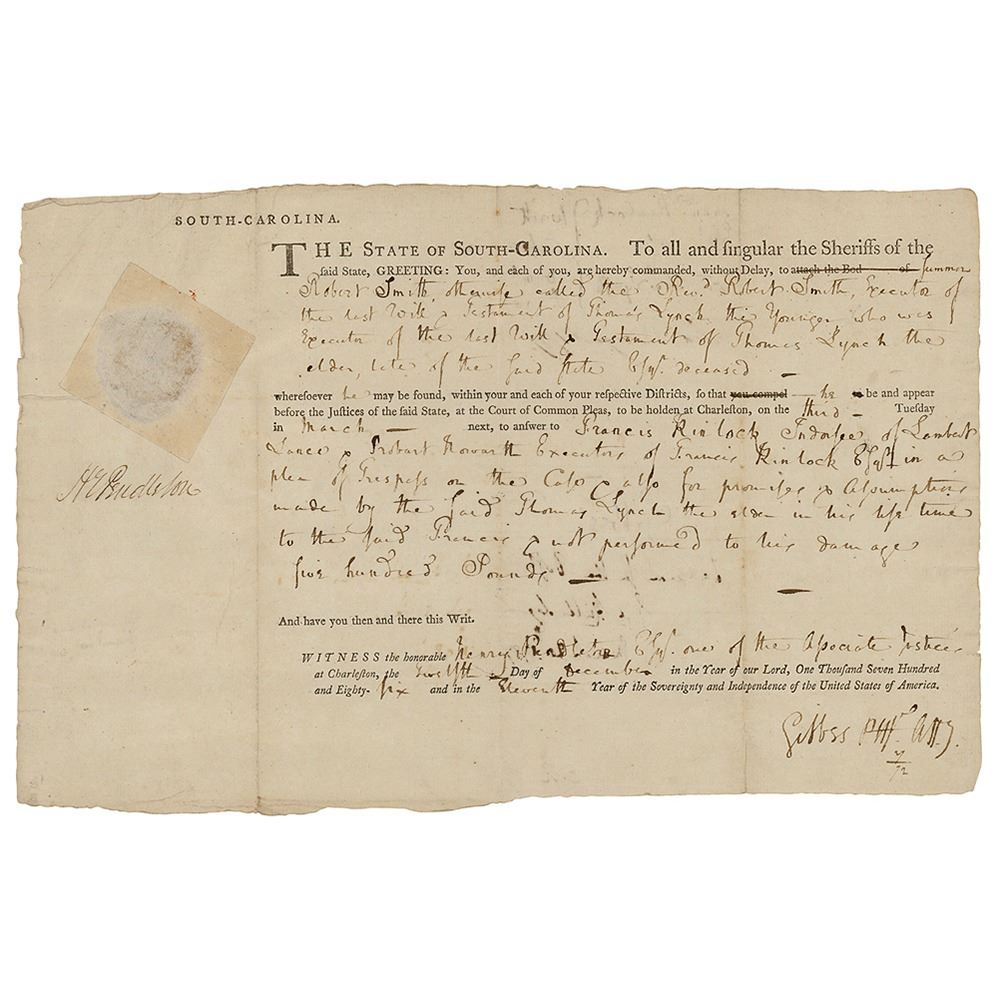 SOUTH-CAROLINA.
THE STATE OF SOUTH-CAROLINA. To all and ſingular the Sheriffs of the
ſaid State, GREETING: You, and each of you, are hereby commanded, without Delay, to attach the Bod of ſummon
Robert Smith, otherwise called the Revd. Robert Smith, Executor of
the last Will & Testament of Thomas Lynch the Younger who was
Executor of the last Will & Testament of Thomas Lynch the
elder, late of the Said State Esqr. deceased
whereſoever he may be found, within your and each of your reſpective Diſtricts, ſo that you compel he be and appear
before the Juſtices of the ſaid State, at the Court of Common Pleas, to be holden at Charleſton, on the third Tueſday
in March next, to answer to Francis Kinlock Indorsee of Lambert
Lance & Probart Howarth Executors of Francis Kinlock Esqr. in a
plea of Trespass on the Case & also for promises & Assumptions
made by the Said Thomas Lynch the elder in his life time
to the said Francis & not perform'd to his damage
five hundred Pounds
And have you then and there this Writ.
WITNESS the honorable Henry Pendleton Esqr. one of the Associate Justices
at Charleſton, the twelfth Day of December in the Year of our Lord, One Thouſand Seven Hundred
and Eighty- six and in the Eleventh Year of the Sovereignty and Independence of the United States of America.
Hy Pendleton
Gibbes Pltffs. Atty.